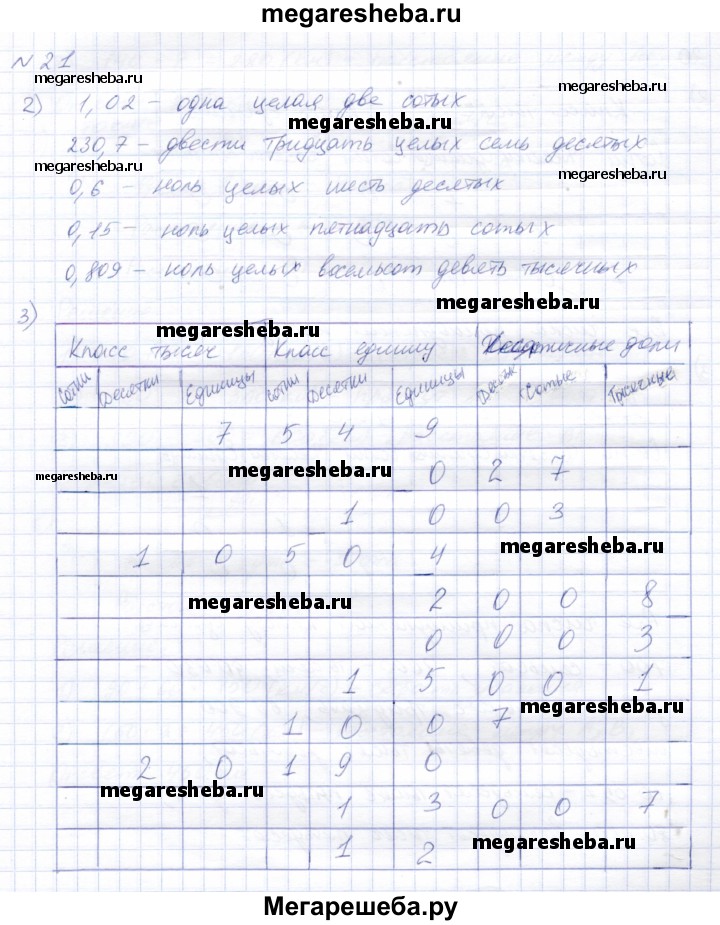 megaresheba.ru
№21
megaresheba.ru megaresheba.ru
2) 1,02 – одна целая две сотых
megaresheba.ru
230,7 – двести тридцать целых семь десятых
megaresheba.ru megaresheba.ru
0,6 – ноль целых шесть десятых
0,15 – ноль целых пятнадцать сотых
0,809 – ноль целых восемьсот девять тысячных
megaresheba.ru
3)
megaresheba.ru
Класс тысяч Класс единиц доли
Сотни Десятки Единицы Сотни Десятки Единицы Сотые Тысячные
7 5 4 9
megaresheba.ru megaresheba.ru 0 2 7
1 0 0 3
1 0 5 0 4 megaresheba.ru
megaresheba.ru 2 0 0 8
0 0 0 3
1 5 0 0 1
1 0 0 7 megaresheba.ru
2 0 1 9 0
megaresheba.ru 1 3 0 0 7
1 2 megaresheba.ru
Мегарешеба.ру